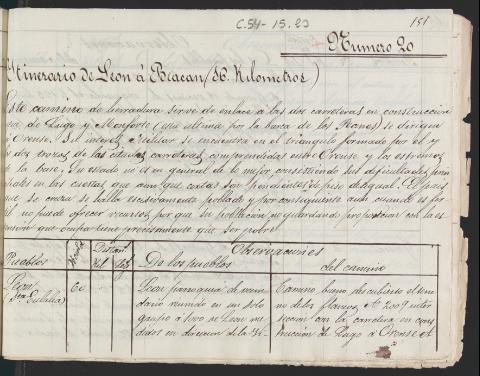 C.54-15.20
151
Numero 20
Itinerario de Leon á Beacan (36. Kilometros)
Este camino de herradura sirve de enlace á las dos carreteras en construccion
de Lugo y Monforte (esta ultima por la barca de los Peares) se dirigen
á Orense. Su interes militar se encuentra en el triangulo formado por el y
los dos trozos de las citadas carreteras comprendidas entre Orense y los estremos
de la base. Su estado no es en general de lo mejor consistiendo sus dificultades
en las cuestas que aun que cortas son pendientes de piso desigual. El pais
que se cruza se halla escasamente poblado y por consiguiente aun cuando es
no puede ofrecer recursos por que su poblacion no guardando proporcion con la
que ocupa tiene precisamente que ser pobre
Pueblos
Vecinos
Distanc
Kil
Observaciones
De los pueblos
del camino
Leon
(Sta Eulalia)
60
Leon parroquia de
dario reunido en un solo
grupo á 1000 de Leon
didos en direccion de la
Camino bueno, descubierto el
no de los flancos. A los 2009
seccion con la carretera en cons
truccion de Lugo á Orense